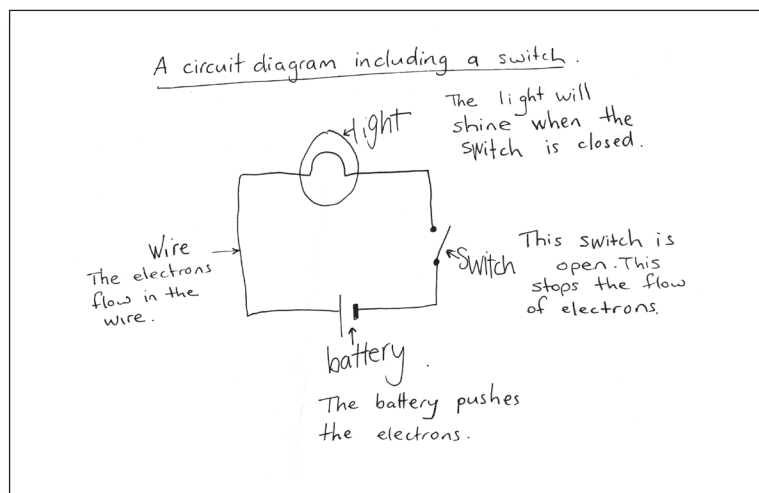 A circuit diagram including a switch.
The light will
shine when the
switch is closed.
light
Wire
The electrons
flow in the
wire.
switch
This switch is
open. This
stops the flow
of electrons.
battery.
The battery pushes
the electrons.